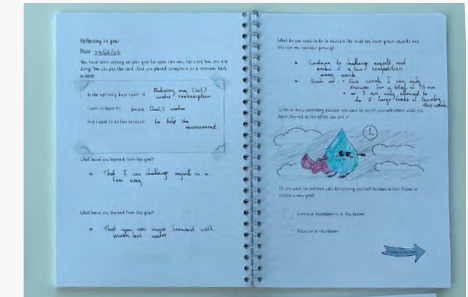 Reflecting on goal
Date
You have been working on your goal for some time now. Let's see how you are
doing! You can put the card that you placed somewhere as a reminder back
in here:
In the upcoming days I want to: Reducing my (hot)
water consumption
I want to learn to: save (hot) water
And I want to do this because: to help the
environment
What have you learned from the goal?
That I can challenge myself in a
fun way
What have you learned from the goal?
That you can move forward with
much less water
What do you need to do to maintain the level you have grown towards and
Continue to challenge myself and
make it a fun competition
every week
this week I can only
shower for a total of 15 min
I am only allowed to
do 2 large loads of laundry
this week
Write or draw something positive you want to say to yourself about what you
have learned or the effort you put in
Do you want to continue with developing yourself further in this theme or
choose a new goal?
Continue development in this theme
Focus on a new theme